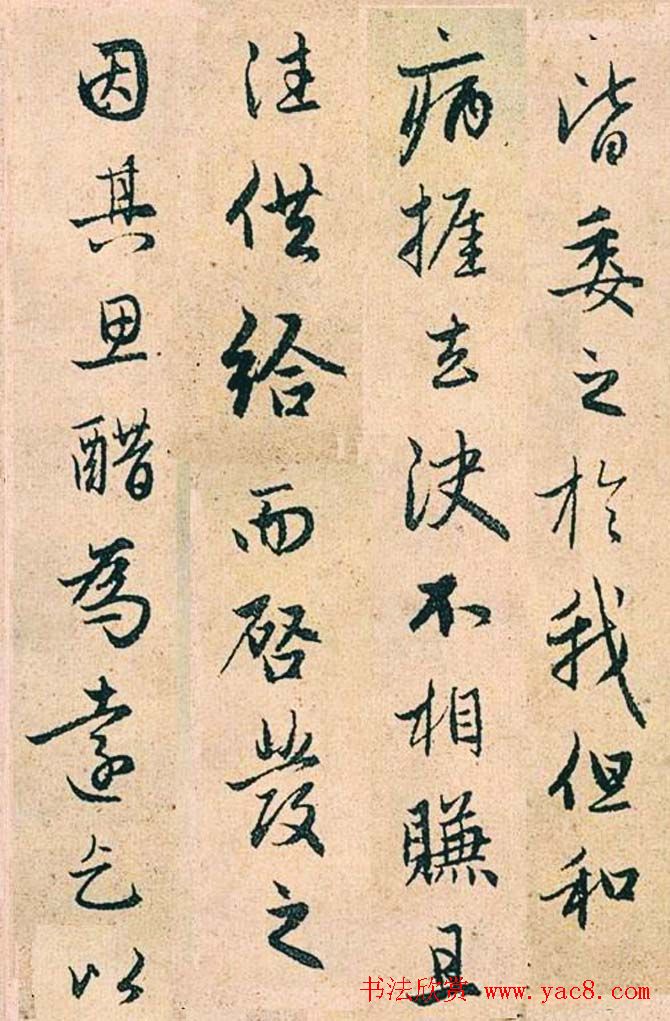 皆委之於我但和
病握去決不相賺且
往供給而啓發之
因其思醋為遠乞以
书法欣赏 www.yac8.com